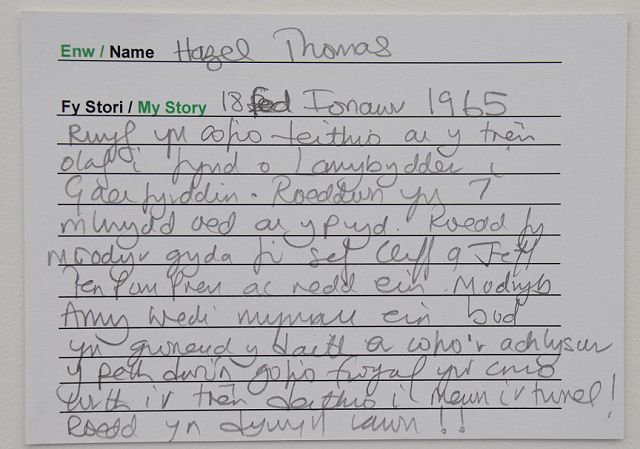 Enw / Name Hazel Thomas
Fy Stori / My Story 18fed Ionawr 1965
Rwyf yn cofio teithio ar y trên
olaf i fynd o Lanybydder i
Gaerfyrddin. Roeddwn yn 7
mlwydd oed ar y pryd. Roedd fy
mrodyr gyda fi sef Cliff a Jeff
Pen Pompren ac redd ein Modryb
Amy wedi mynnu ein bod
yn gwneud y daith a cofio'r achlysur
y peth dwi'n gofio fwyaf yw crio
wrth i'r trên deithio i mewn i'r tunel!
Roedd yn dywyll iawn!!